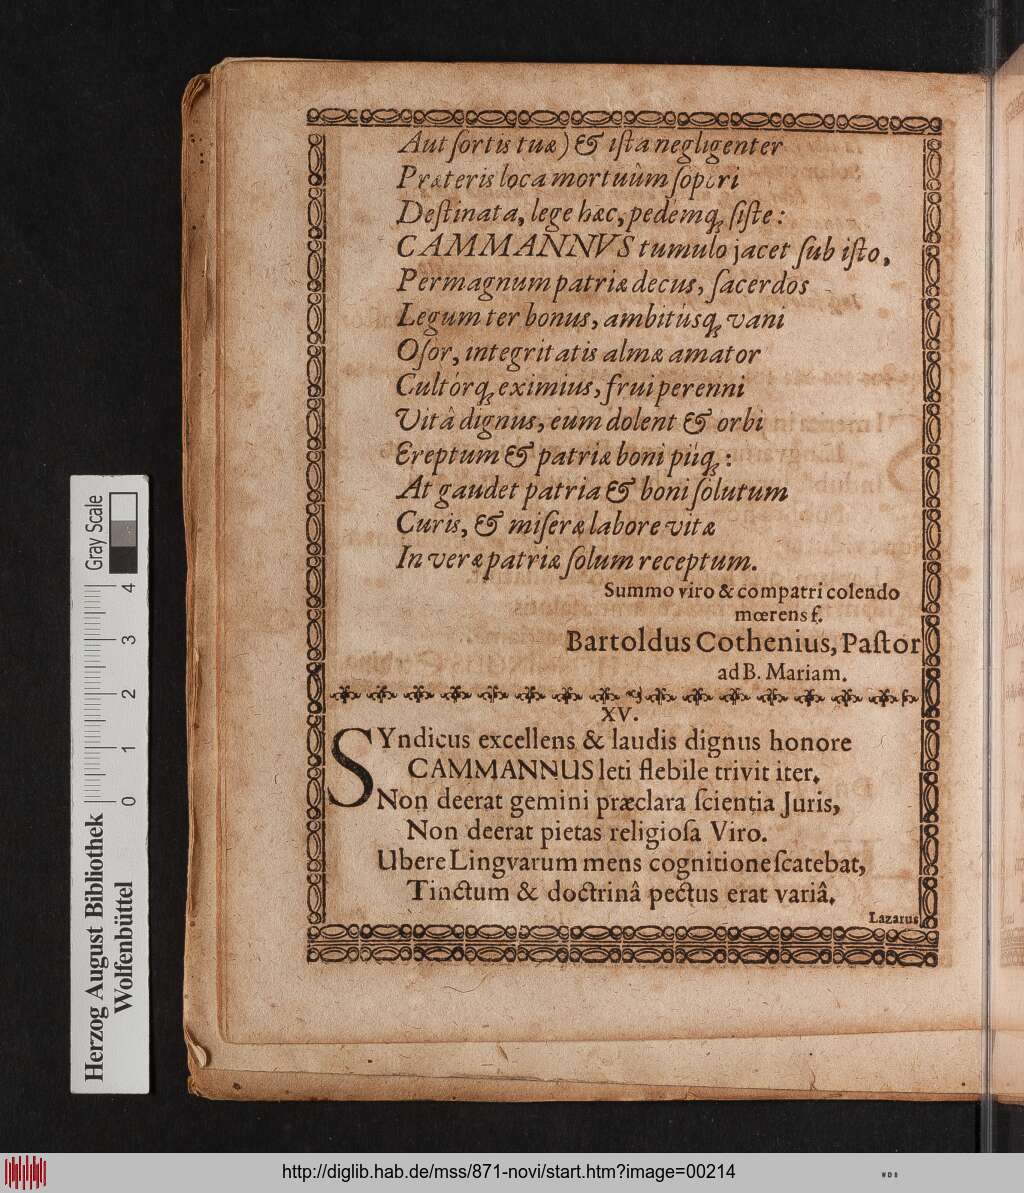 Aut ſortis tuæ) & iſta negligenter
Præteris loca mortuûm ſopori
Deſtinata, lege hæc, pedémq́; ſiſte:
CAMMANNVS tumulo jacet ſub iſto,
Permagnum patriæ decus, ſacerdos
Legum ter bonus, ambitúsq́; vani
Oſor, integritatis almæ amator
Cultórq́; eximius, frui perenni
Vitâ dignus, eum dolent & orbi
Ereptum & patriæ boni piíq́;:
At gaudet patria & boni ſolutum
Curis, & miſeræ labore vitæ
In veræ patriæ ſolum receptum.
Summo viro & compatri colendo
mœrens f.
Bartoldus Cothenius, Paſtor
ad B. Mariam.
XV.
SYndicus excellens & laudis dignus honore
CAMMANNUS leti flebile trivit iter,
Non deerat gemini præclara ſcientia Juris,
Non deerat pietas religioſa Viro.
Ubere Lingvarum mens cognitione ſcatebat,
Tinctum & doctrinâ pectus erat variâ,
Lazarus
Herzog August Bibliothek
Wolfenbüttel
0 1 2 3 4
Gray Scale
http://diglib.hab.de/mss/871-novi/start.htm?image=00214